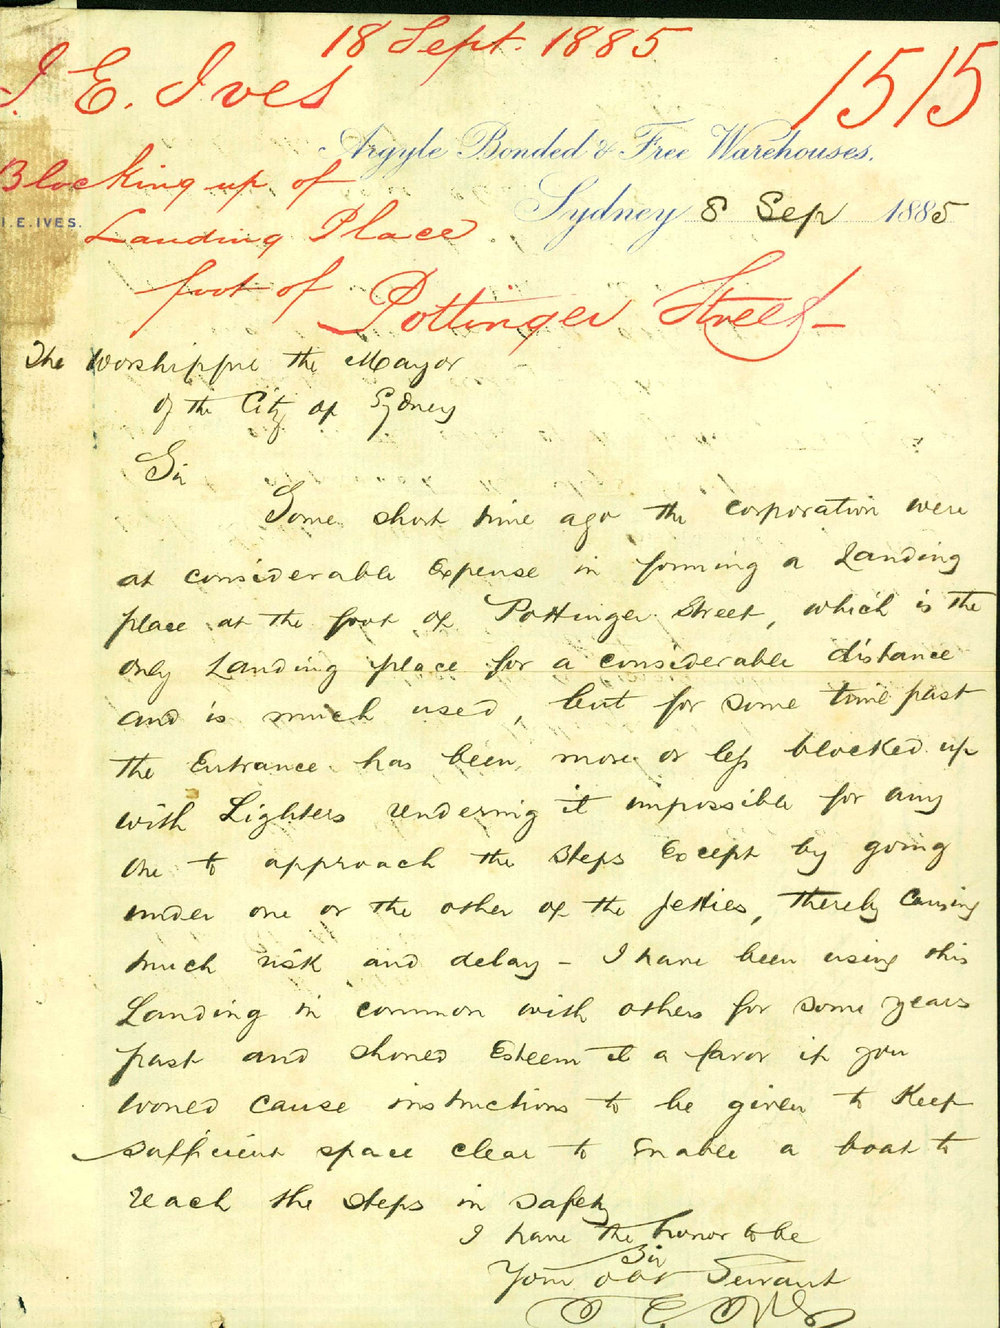 18 Sept. 1885
I. E. Ives
1515
Argyle Bonded & Free Warehouses.
Blocking up of
Sydney 8 Sep 1885
I.E. IVES.
Landing Place
foot of Pottinger Street
The Worshipful the Mayor
of the City of Sydney
Sir
Some short time ago the corporation were
at considerable Expense in forming a Landing
place at the foot of Pottinger Street, which is the
only Landing place for a considerable distance
and is much used, but for some time past
the Entrance has been more or less blocked up
with Lighters rendering it impossible for any
one to approach the steps Except by going
under one or the other of the Jetties, thereby causing
much risk and delay - I have been using this
Landing in common with others for some years
past and should Esteem it a favor if you
would cause instructions to be given to Keep
sufficient space clear to Enable a boat to
reach the steps in safety
I have the honor to be
Sir
Your obt Servant
I E Ives